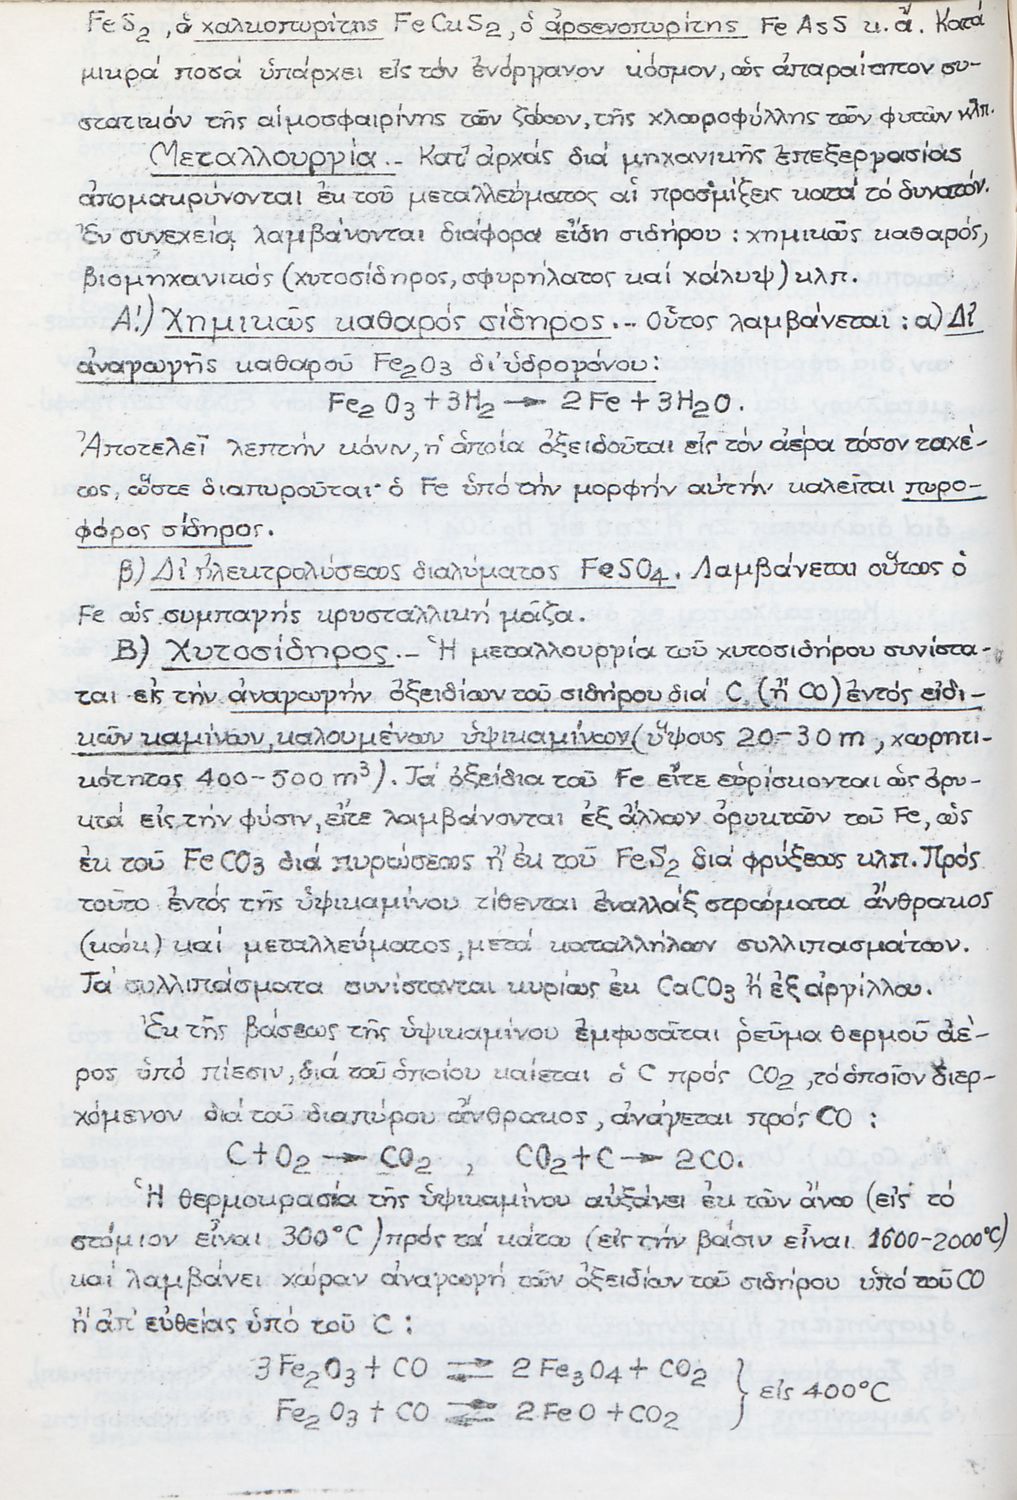 FeS2, ὁ χαλκοπυρίτης FeCuS2, ὁ ἀρσενοπυρίτης FeAsS κ.ἄ. Κατά
μικρά ποσά ὑπάρχει εἰς τόν ἐνόργανον κόσμον, ὡς ἀπαραίτητον συ-
στατικόν τῆς αἱμοσφαιρίνης τῶν ζώων, τῆς χλωροφύλλης τῶν φυτῶν κλπ.
Μεταλλουργία.- Κατ' ἀρχάς διά μηχανικῆς ἐπεξεργασίας
ἀπομακρύνονται ἐκ τοῦ μεταλλεύματος αἱ προσμίξεις κατά τό δυνατόν.
Ἐν συνεχείᾳ λαμβάνονται διάφορα εἴδη σιδήρου: χημικῶς καθαρός,
βιομηχανικός (χυτοσίδηρος, σφυρήλατος καί χάλυψ) κλπ.
Α!) Χημικῶς καθαρός σίδηρος.- Οὗτος λαμβάνεται: α) Δι'
ἀναγωγῆς καθαροῦ Fe2O3 δι' ὑδρογόνου:
Fe2O3 + 3H2 → 2Fe + 3H2O.
Ἀποτελεῖ λεπτήν κόνιν, ἡ ὁποία ὀξειδοῦται εἰς τόν ἀέρα τόσον ταχέ-
ως, ὥστε διαπυροῦται· ὁ Fe ὑπό τήν μορφήν αὐτήν καλεῖται πυρο-
φόρος σίδηρος.
β) Δι' ἠλεκτρολύσεως διαλύματος FeSO4. Λαμβάνεται οὕτως ὁ
Fe ὡς συμπαγής κρυσταλλική μᾶζα.
Β) Χυτοσίδηρος.- Ἡ μεταλλουργία τοῦ χυτοσιδήρου συνίστα-
ται εἰς τήν ἀναγωγήν ὀξειδίων τοῦ σιδήρου διά C (ἤ CO) ἐντός εἰδι-
κῶν καμίνων, καλουμένων ὑψικαμίνων (ὕψους 20-30 m, χωρητι-
κότητος 400-500 m³). Τά ὀξείδια τοῦ Fe εἴτε εὑρίσκονται ὡς ὀρυ-
κτά εἰς τήν φύσιν, εἴτε λαμβάνονται ἐξ ἄλλων ὀρυκτῶν τοῦ Fe, ὡς
ἐκ τοῦ FeCO3 διά πυρώσεως ἤ ἐκ τοῦ FeS2 διά φρύξεως κλπ. Πρός
τοῦτο ἐντός τῆς ὑψικαμίνου τίθενται ἐναλλάξ στρώματα ἄνθρακος
(κώκ) καί μεταλλεύματος, μετά καταλλήλων συλλιπασμάτων.
Τά συλλιπάσματα συνίστανται κυρίως ἐκ CaCO3 ἤ ἐξ ἀργίλλου.
Ἐκ τῆς βάσεως τῆς ὑψικαμίνου ἐμφυσᾶται ρεῦμα θερμοῦ ἀέ-
ρος ὑπό πίεσιν, διά τοῦ ὁποίου καίεται ὁ C πρός CO2, τό ὁποῖον διερ-
χόμενον διά τοῦ διαπύρου ἄνθρακος, ἀνάγεται πρός CO:
C + O2 → CO2 , CO2 + C → 2CO.
Ἡ θερμοκρασία τῆς ὑψικαμίνου αὐξάνει ἐκ τῶν ἄνω (εἰς τό
στόμιον εἶναι 300°C) πρός τά κάτω (εἰς τήν βάσιν εἶναι 1600-2000°C)
καί λαμβάνει χώραν ἀναγωγή τῶν ὀξειδίων τοῦ σιδήρου ὑπό τοῦ CO
ἤ ἀπ' εὐθείας ὑπό τοῦ C:
3Fe2O3 + CO ⇌ 2Fe3O4 + CO2
Fe2O3 + CO ⇌ 2FeO + CO2 } εἰς 400°C